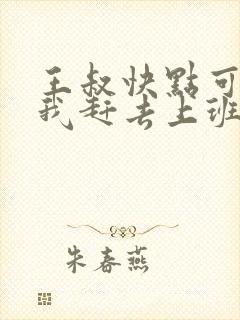 王叔快點可
我赶去上班
朱春燕